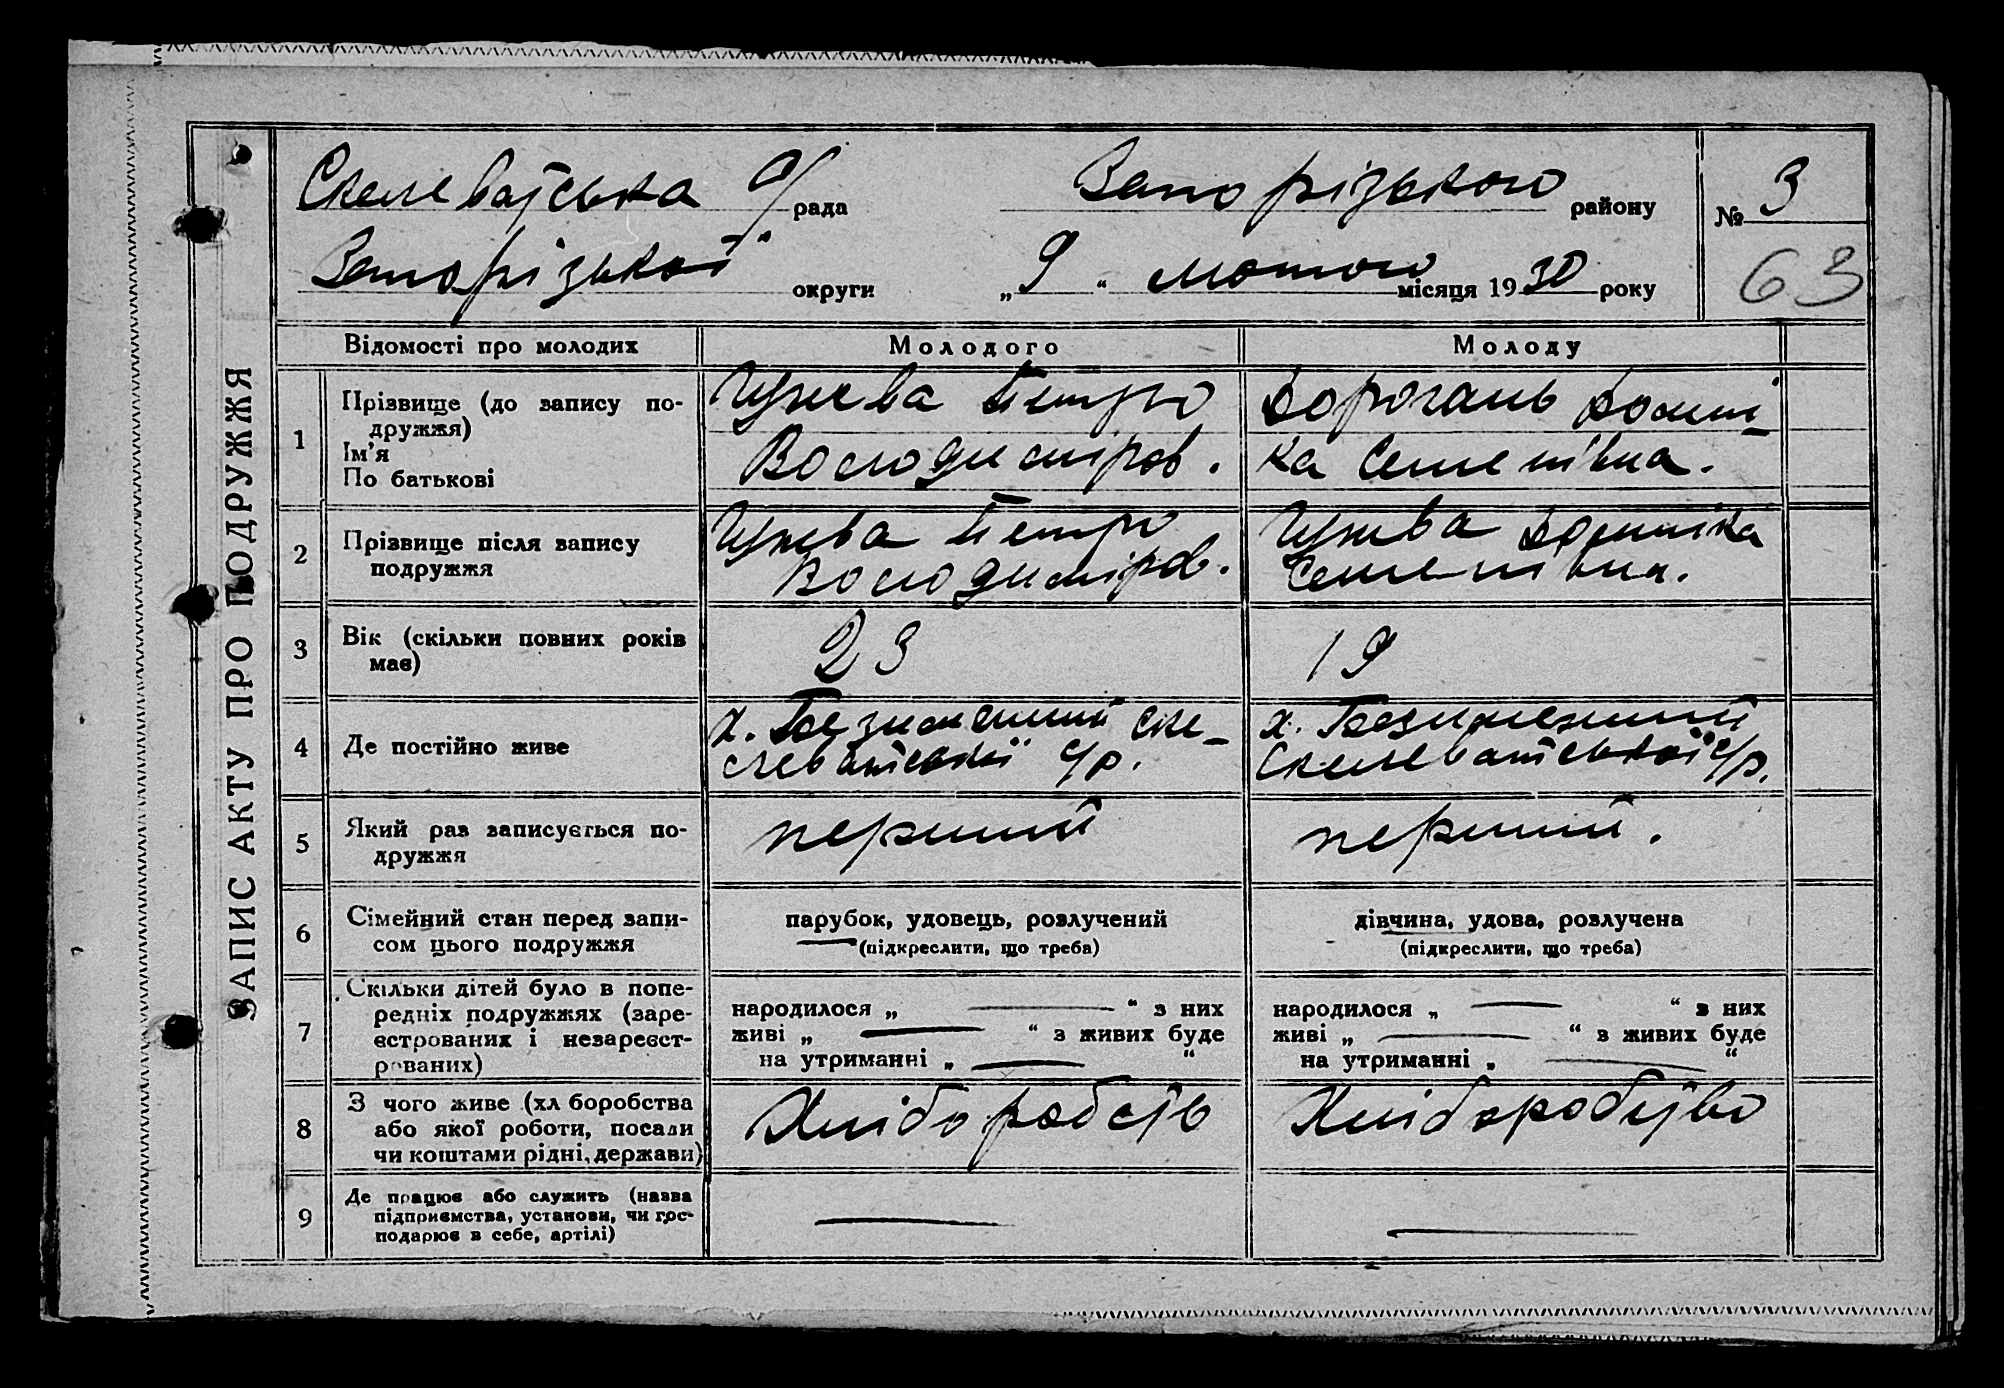 ЗАПИС АКТУ ПРО ПОДРУЖЖЯ
Скелеватська с/рада Запорізького району № 3
Запорізької округи „9“ лютого місяця 1930 року 63
Відомості про молодих Молодого Молоду
1 Прізвище (до запису подружжя)
Ім'я
По батькові
Петро
Володимиров.
Дорогань Домні-
ка Семенівна.
2 Прізвище після запису
подружжя
Петро
Володимиров.
Домніка
Семенівна.
3 Вік (скільки повних років
має)
23 19
4 Де постійно живе
х. Безименний Ске-
леватської с/р.
х. Безименний
Скелеватської с/р.
5 Який раз записується по-
дружжя
перший перший.
6 Сімейний стан перед запи-
сом цього подружжя
парубок, удовець, розлучений
(підкреслити, що треба)
дівчина, удова, розлучена
(підкреслити, що треба)
7 Скільки дітей було в попе-
редніх подружжях (заре-
єстрованих і незареєст-
рованих)
народилося „ — “ з них
живі „ — “ з живих буде
на утриманні „ — “
народилося „ — “ з них
живі „ — “ з живих буде
на утриманні „ — “
8 З чого живе (хліборобства
або якої роботи, посади
чи коштами рідні, держави)
Хлібороб Хліборобство
9 Де працює або служить (назва
підприємства, установи, чи гос-
подарює в себе, артілі)
— —